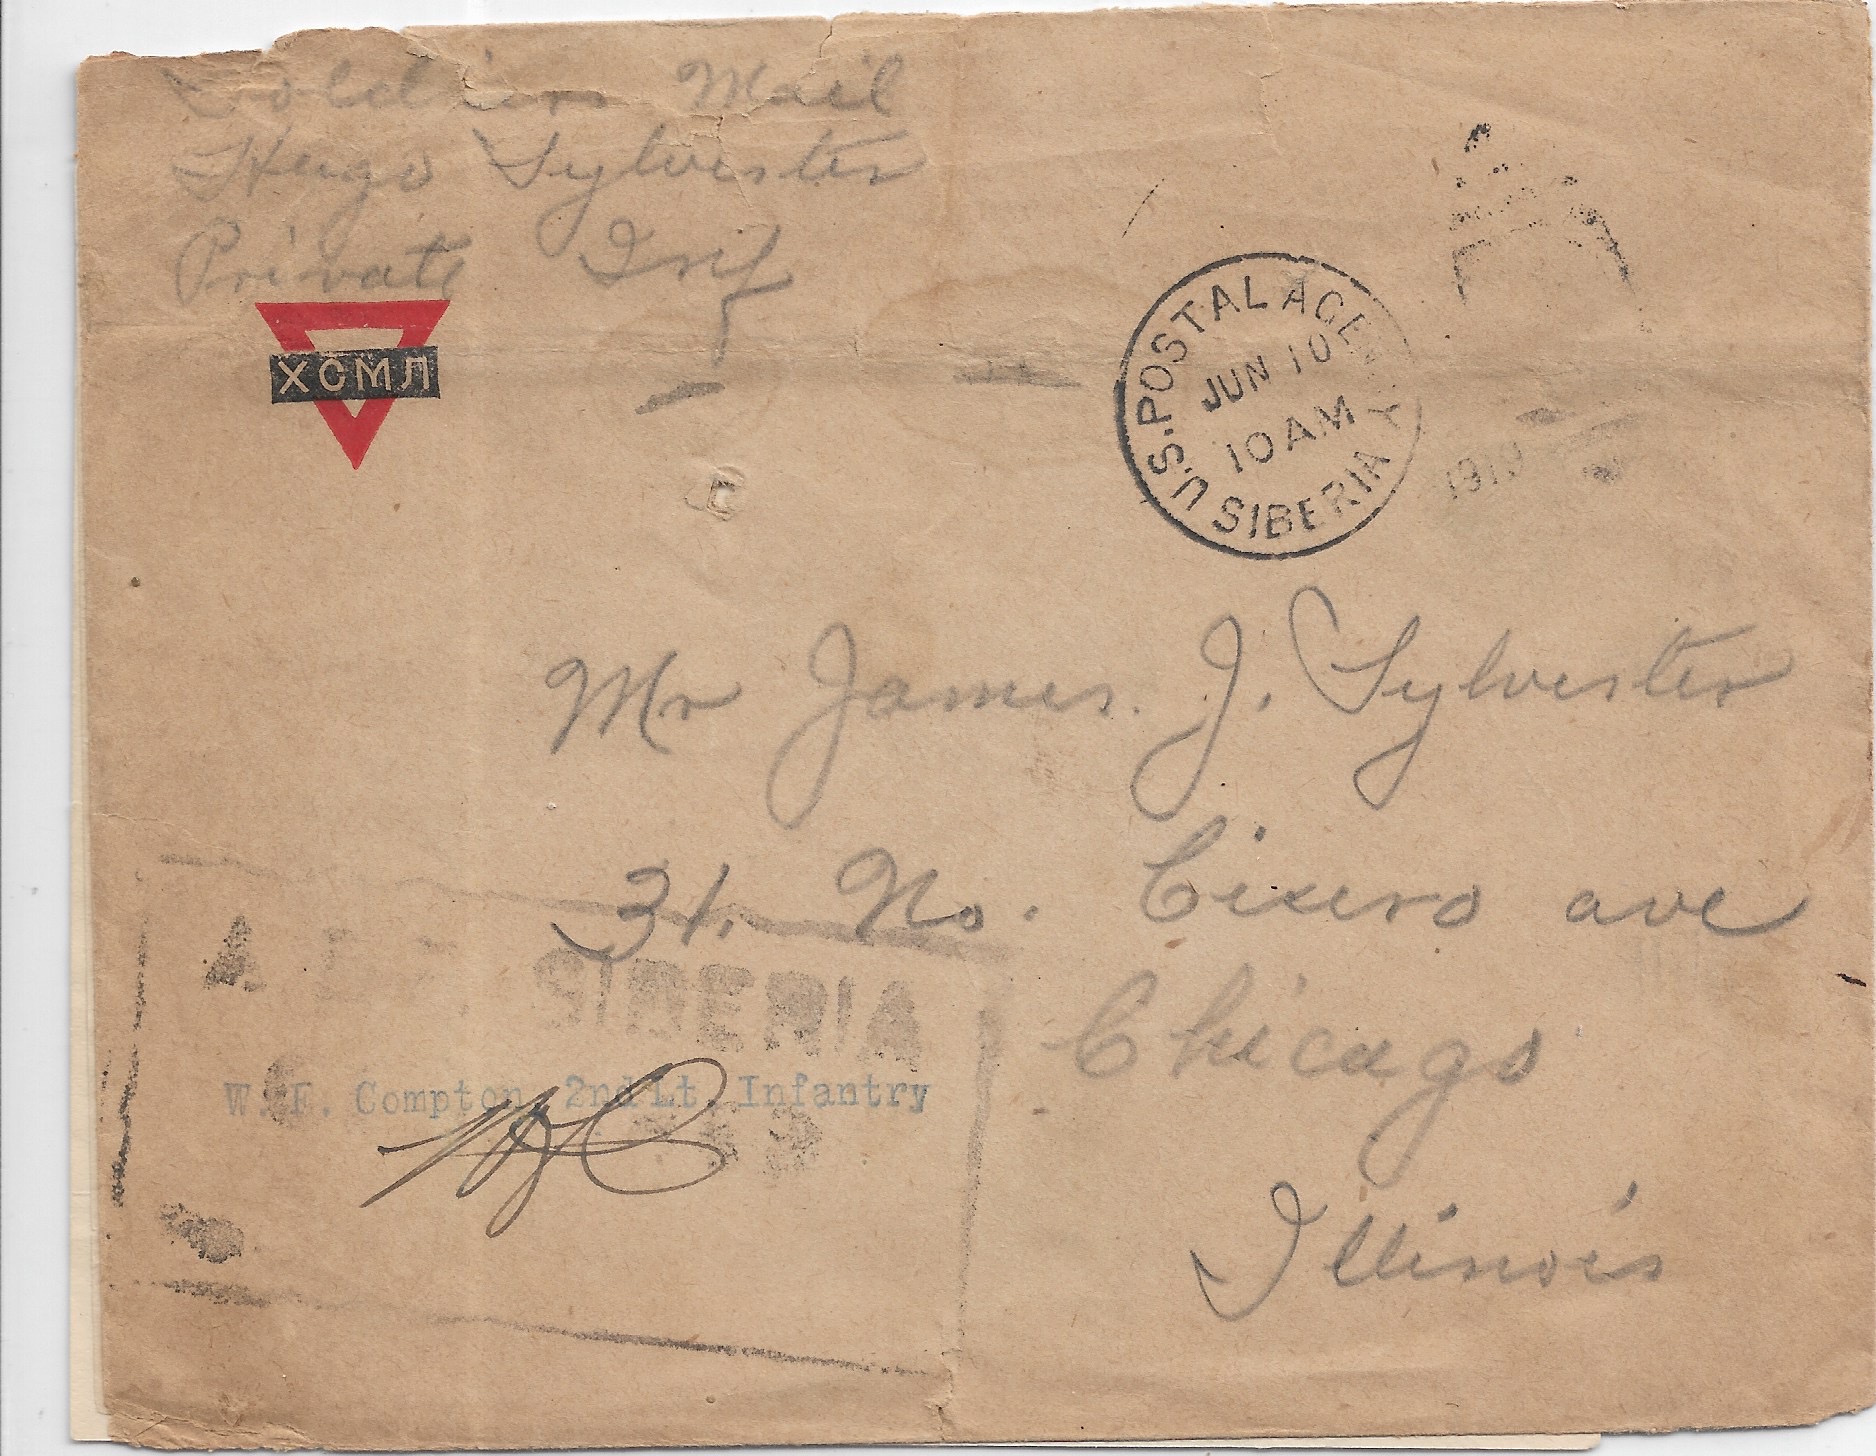 Soldiers Mail
Hugo Sylvester
Private Inf
ХСМЛ
U.S. POSTAL AGENCY
JUN 10
10 AM
SIBERIA
1919
Mr James. J. Sylvester
31. No. Cisero ave
Chicago
Illinois
A. E. F. SIBERIA
W. F. Compton, 2nd Lt. Infantry
WFC